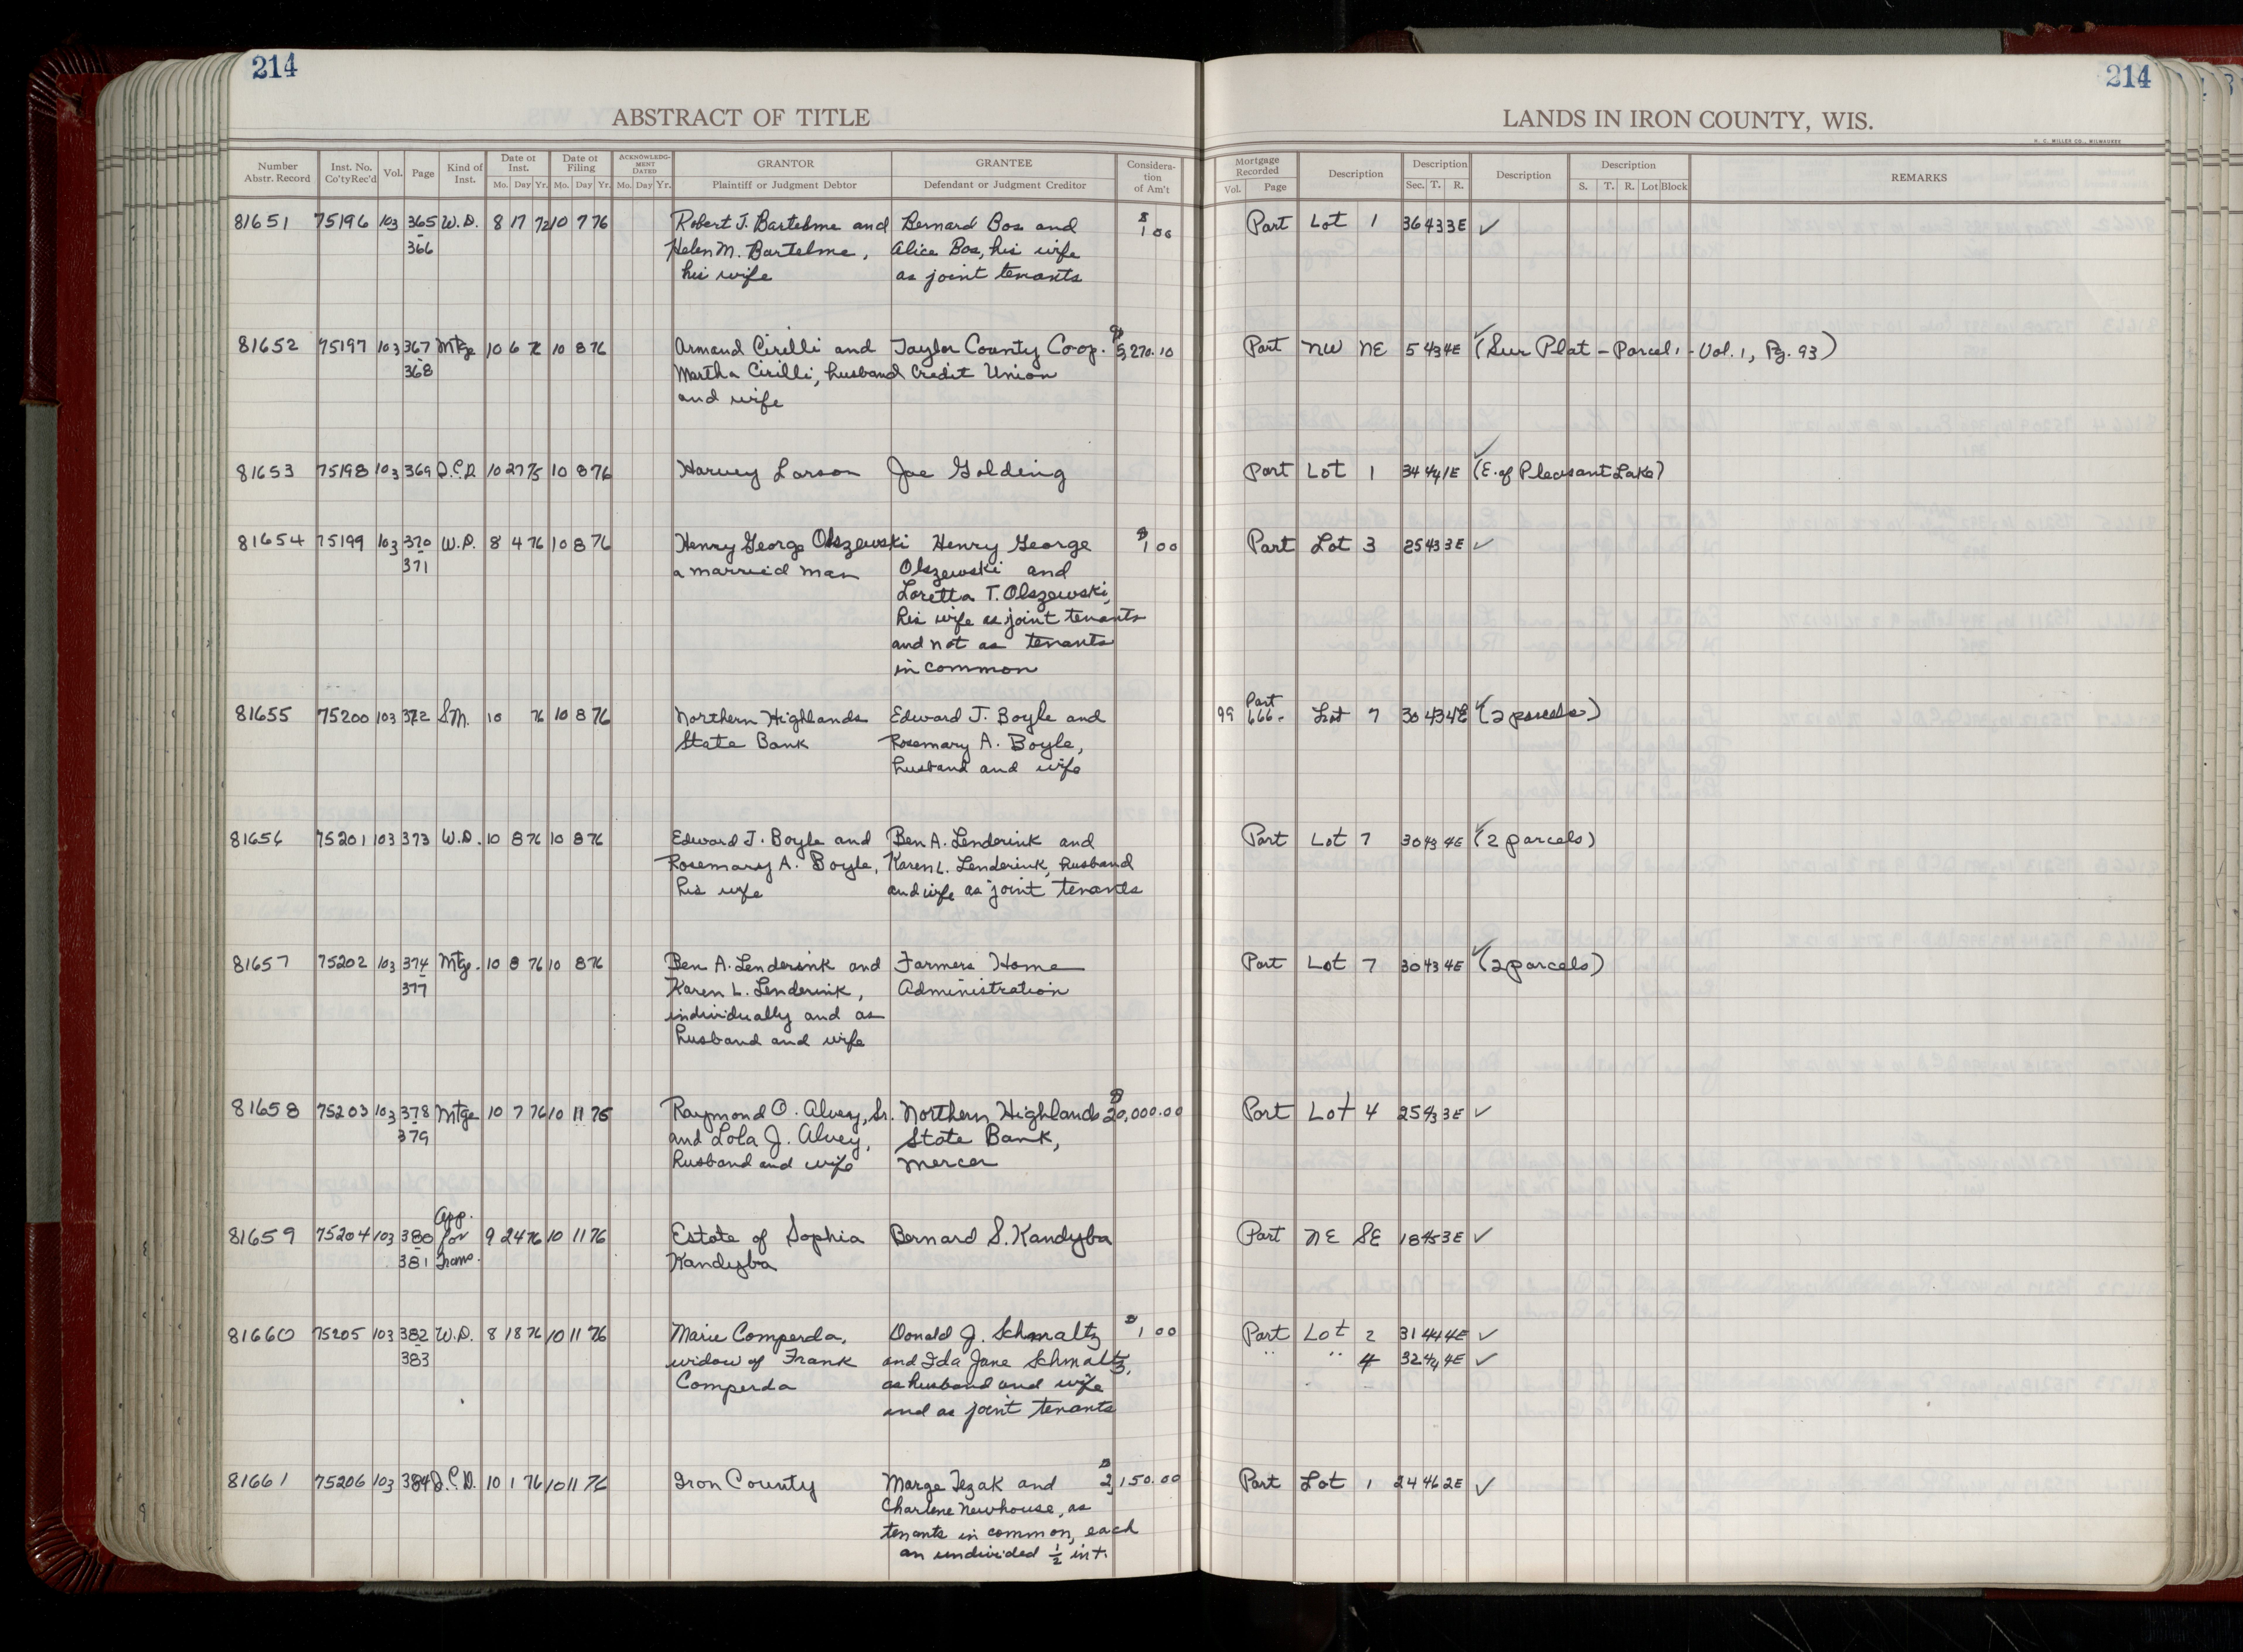 214
214
ABSTRACT OF TITLE
LANDS IN IRON COUNTY, WIS.
H. C. MILLER CO., MILWAUKEE
Number Abstr. Record Inst. No. Co'ty Rec'd Vol. Page Kind of Inst. Date of Inst. Mo. Day Yr. Date of Filing Mo. Day Yr. ACKNOWLEDGMENT DATED Mo. Day Yr. GRANTOR Plaintiff or Judgment Debtor GRANTEE Defendant or Judgment Creditor Consideration of Am't
Mortgage Recorded Vol. Page Description Description Sec. T. R. Description Description S. T. R. Lot Block REMARKS
81651 75196 103 365 W.D. 8 17 72 10 7 76 Robert J. Bartelme and Bernard Bos and $ 1 00 Part Lot 1 36 43 3E ✓
366 Helen M. Bartelme, Alice Bos, his wife
his wife as joint tenants
81652 75197 103 367 Mtge 10 6 76 10 8 76 Armand Cirilli and Taylor County Co-op. $5,270.10 Part NW NE 5 43 4E ✓ (Sur Plat - Parcel 1 - Vol. 1, Pg. 93)
368 Martha Cirilli, husband Credit Union
and wife
81653 75198 103 369 Q.C.D. 10 27 75 10 8 76 Harvey Larson Joe Golding Part Lot 1 34 44 1E ✓ (E. of Pleasant Lake)
81654 75199 103 370 W.D. 8 4 76 10 8 76 Henry George Olszewski Henry George $ 1 00 Part Lot 3 25 43 3E ✓
371 a married man Olszewski and
Loretta T. Olszewski,
his wife as joint tenants
and not as tenants
in common
81655 75200 103 372 S.M. 10 76 10 8 76 Northern Highlands Edward J. Boyle and 99 Part 666- Lot 7 30 43 4E ✓ (2 parcels)
State Bank Rosemary A. Boyle,
husband and wife
81656 75201 103 373 W.D. 10 8 76 10 8 76 Edward J. Boyle and Ben A. Lenderink and Part Lot 7 30 43 4E ✓ (2 parcels)
Rosemary A. Boyle, Karen L. Lenderink, husband
his wife and wife as joint tenants
81657 75202 103 374 Mtge. 10 8 76 10 8 76 Ben A. Lenderink and Farmers Home Part Lot 7 30 43 4E ✓ (2 parcels)
377 Karen L. Lenderink, Administration
individually and as
husband and wife
81658 75203 103 378 Mtge 10 7 76 10 11 76 Raymond O. Alvey, Sr. Northern Highlands $20,000.00 Part Lot 4 25 43 3E ✓
379 and Lola J. Alvey, State Bank,
husband and wife Mercer
App.
81659 75204 103 380 for 9 24 76 10 11 76 Estate of Sophia Bernard S. Kandyba Part NE SE 18 45 3E ✓
381 Trans. Kandyba
81660 75205 103 382 W.D. 8 18 76 10 11 76 Marie Comperda, Donald J. Schmaltz $ 1 00 Part Lot 2 31 44 4E ✓
383 widow of Frank and Ida Jane Schmaltz, " " 4 32 44 4E ✓
Comperda as husband and wife
and as joint tenants
81661 75206 103 384 Q.C.D. 10 1 76 10 11 76 Iron County Marge Tezak and $2,150.00 Part Lot 1 24 46 2E ✓
Charlene Newhouse, as
tenants in common, each
an undivided ½ int.